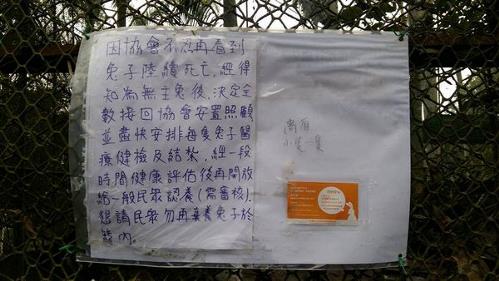 因協會不忍再看到
兔子陸續死亡，經得
知為無主兔後，決定全
數接回協會安置照顧
並盡快安排每隻兔子醫
療健檢及結紮，經一段
時間健康評估後再開放
給一般民眾認養(需審核)，
懇請民眾勿再棄養兔子於
籠內。
尚有
小兔一隻